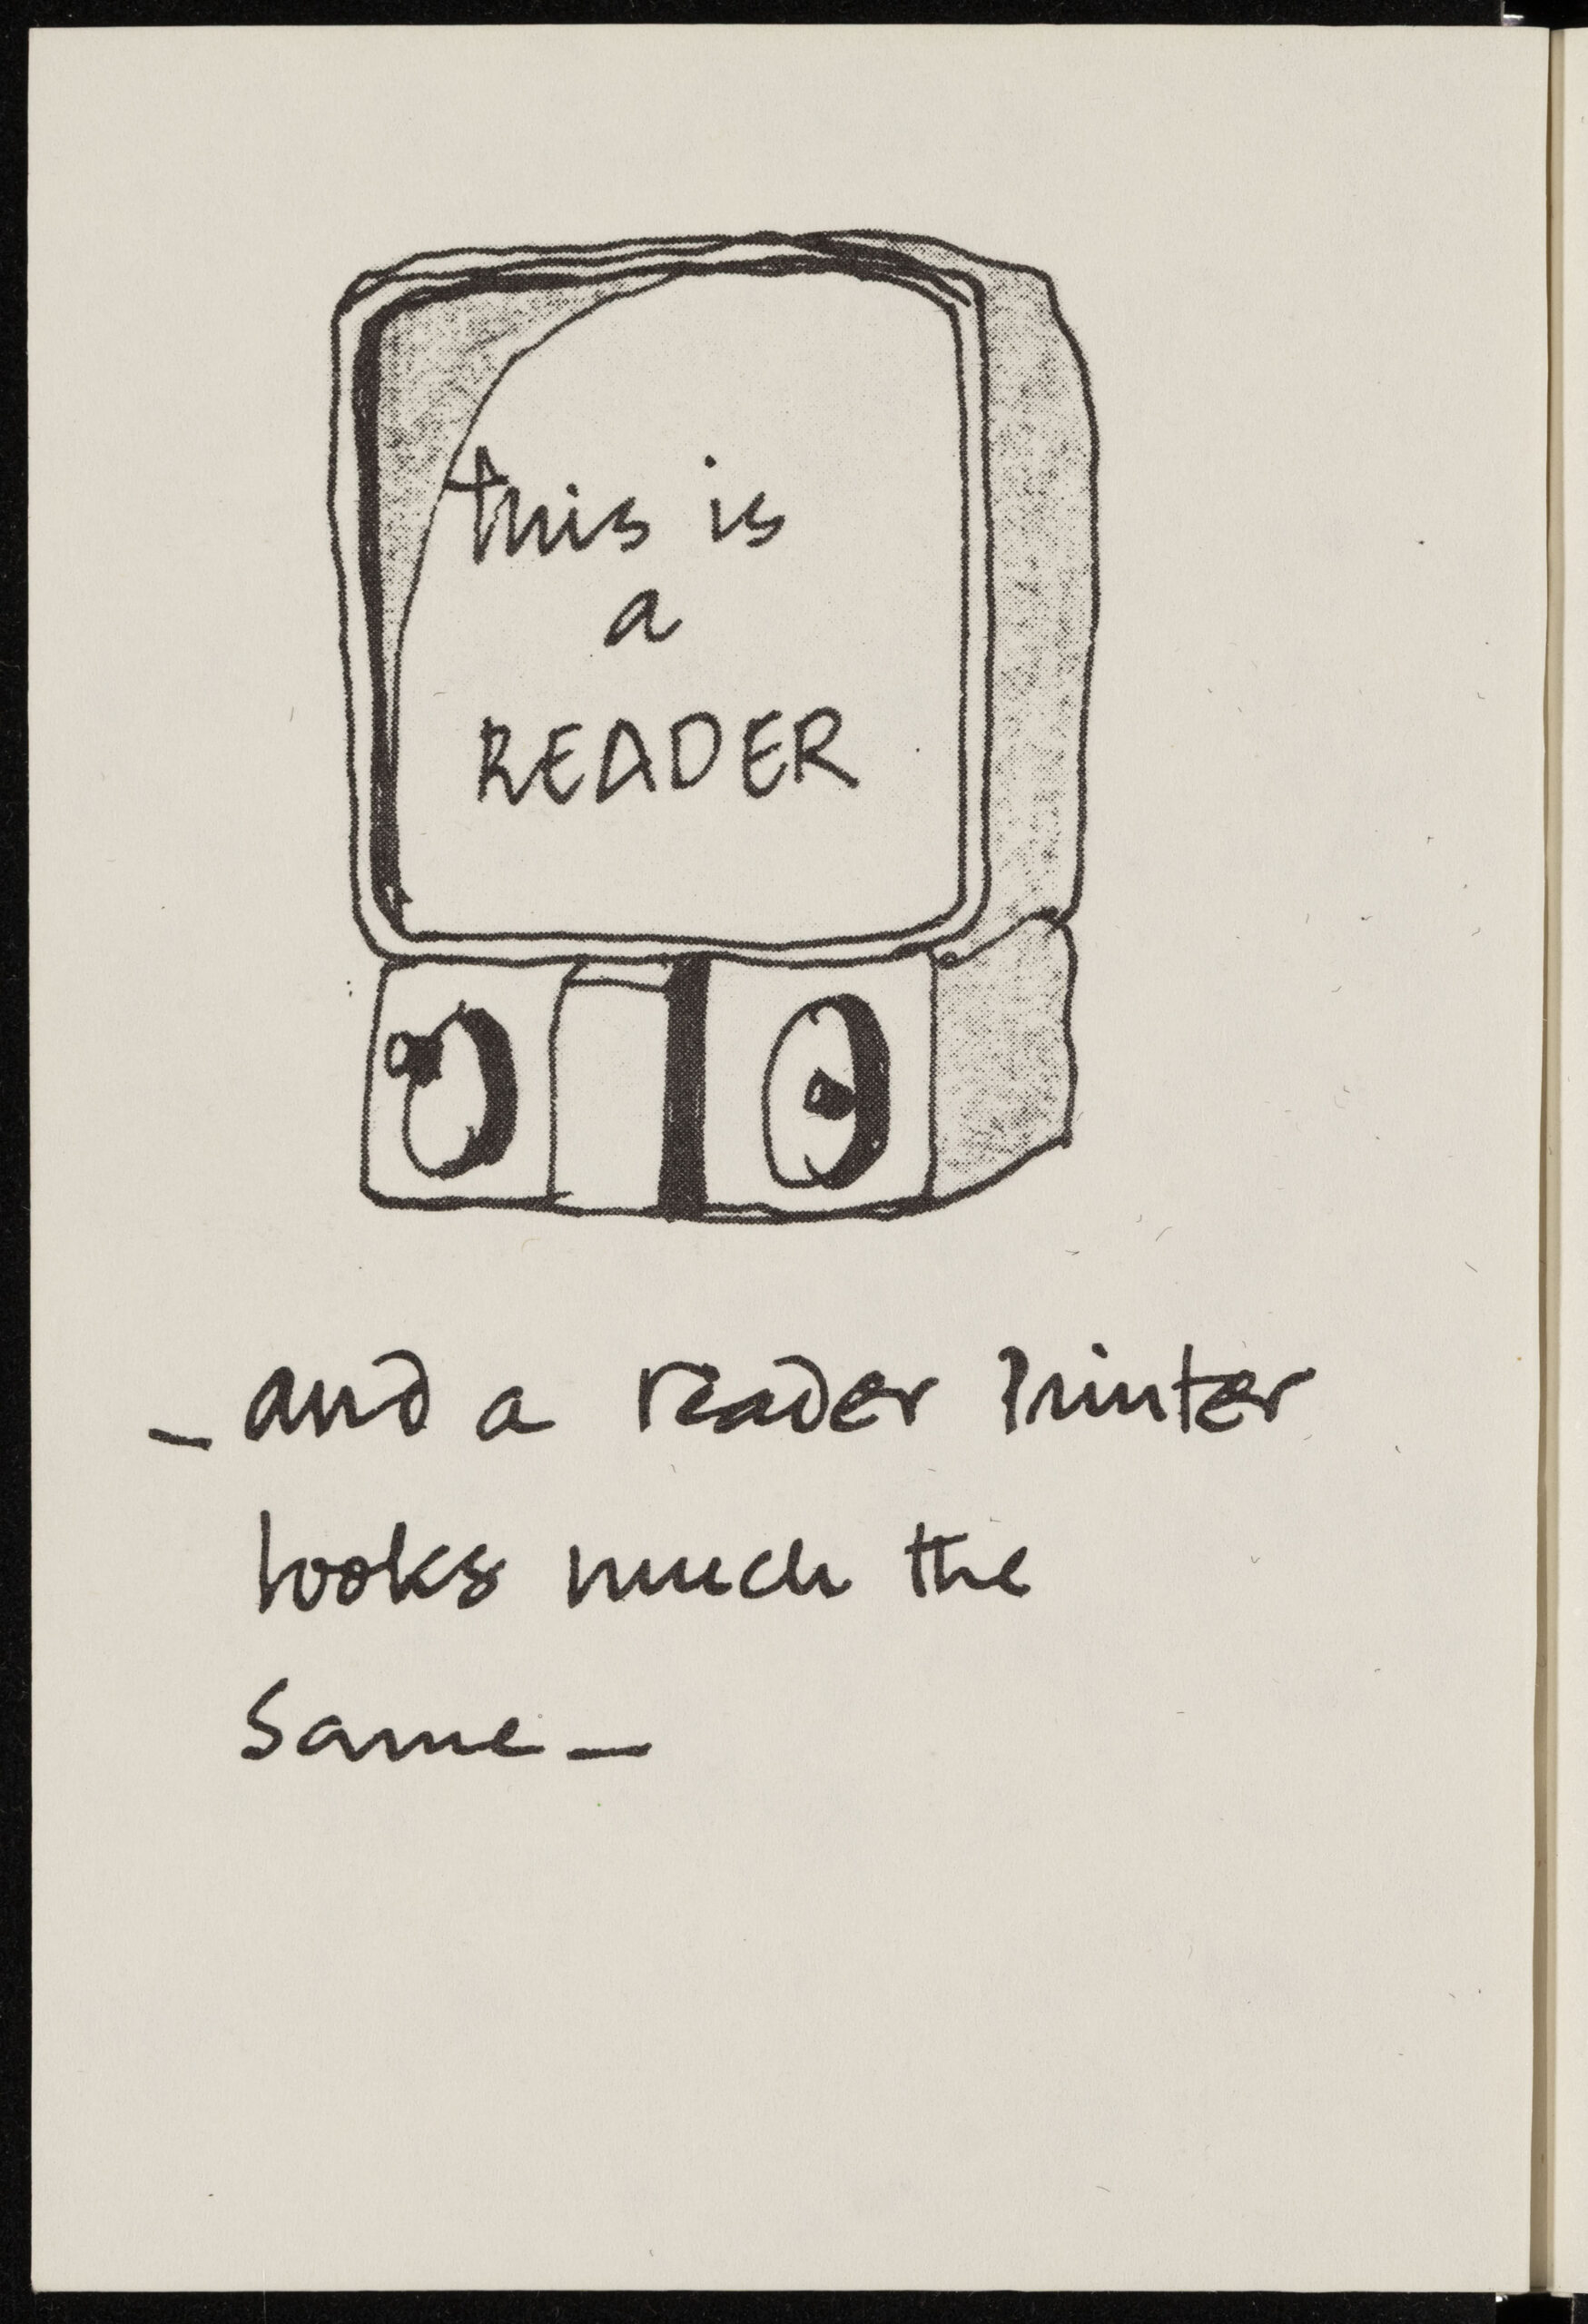 this is
a
READER
- and a reader printer
looks much the
same -